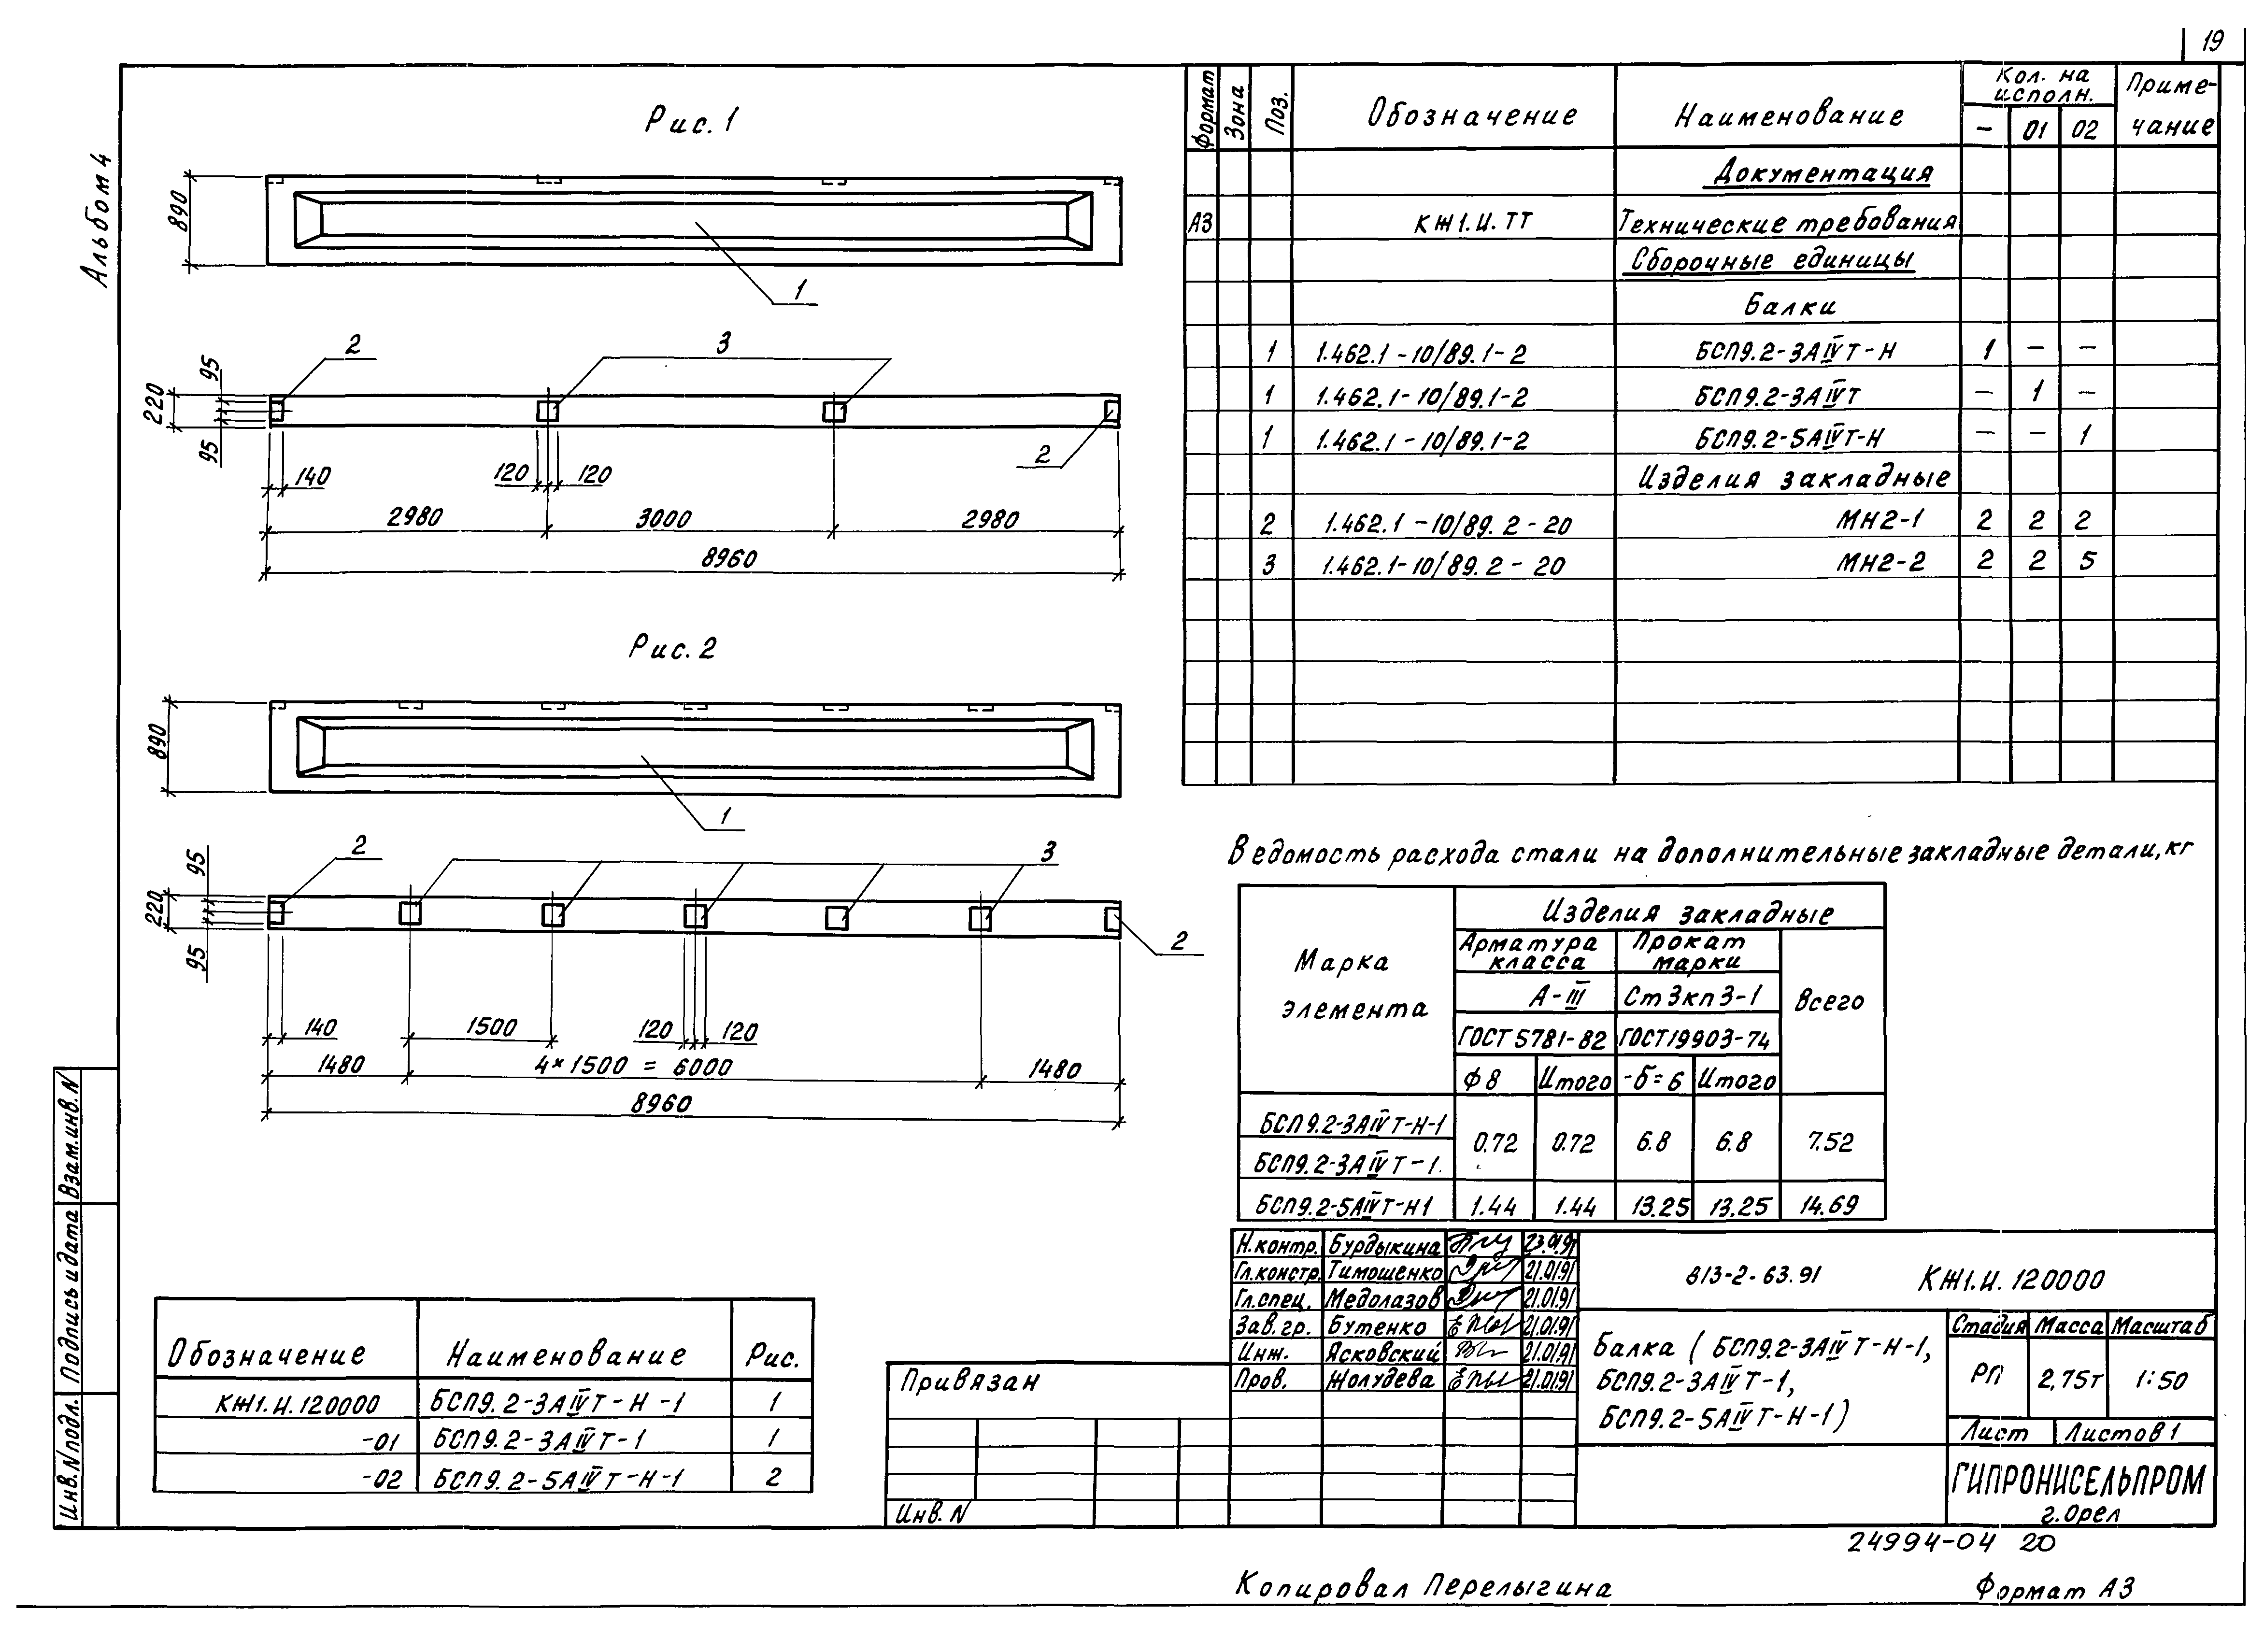 19
Альбом 4
Рис. 1
890
1
2
3
95
220
95
2
140
120
120
2980
3000
2980
8960
Рис. 2
890
1
2
3
95
220
95
2
140
1500
120
120
1480
4×1500 = 6000
1480
8960
Формат
Зона
Поз.
Обозначение
Наименование
Кол. на исполн.
–
01
02
Приме-
чание
Документация
А3 КЖ1.И.ТТ Технические требования
Сборочные единицы
Балки
1 1.462.1-10/89.1-2 БСП9.2-3АIVТ-Н 1 – –
1 1.462.1-10/89.1-2 БСП9.2-3АIVТ – 1 –
1 1.462.1-10/89.1-2 БСП9.2-5АIVТ-Н – – 1
Изделия закладные
2 1.462.1-10/89.2-20 МН2-1 2 2 2
3 1.462.1-10/89.2-20 МН2-2 2 2 5
Ведомость расхода стали на дополнительные закладные детали, кг
Марка
элемента
Изделия закладные
Арматура класса
Прокат марки
Всего
А-III
Ст3кп3-1
ГОСТ 5781-82
ГОСТ19903-74
ф8
Итого
-б=6
Итого
БСП9.2-3АIVТ-Н-1
БСП9.2-3АIVТ-1
0.72 0.72 6.8 6.8 7.52
БСП9.2-5АIVТ-Н1 1.44 1.44 13.25 13.25 14.69
Обозначение Наименование Рис.
КЖ1.И.120000 БСП9.2-3АIVТ-Н-1 1
-01 БСП9.2-3АIVТ-1 1
-02 БСП9.2-5АIVТ-Н-1 2
Взам.инв.N
Подпись и дата
Инв.Nподл.
Привязан
Инв.N
Н.контр. Бурдыкина 23.01.91
Гл.констр. Тимошенко 21.01.91
Гл.спец. Медолазов 21.01.91
Зав.гр. Бутенко 21.01.91
Инж. Ясковский 21.01.91
Пров. Жолудева 21.01.91
813-2-63.91
КЖ1.И.120000
Балка (БСП9.2-3АIVТ-Н-1,
БСП9.2-3АIVТ-1,
БСП9.2-5АIVТ-Н-1)
Стадия Масса Масштаб
РП 2,75т 1:50
Лист Листов 1
ГИПРОНИСЕЛЬПРОМ
г.Орел
24994-04 20
Копировал Перелыгина
Формат А3